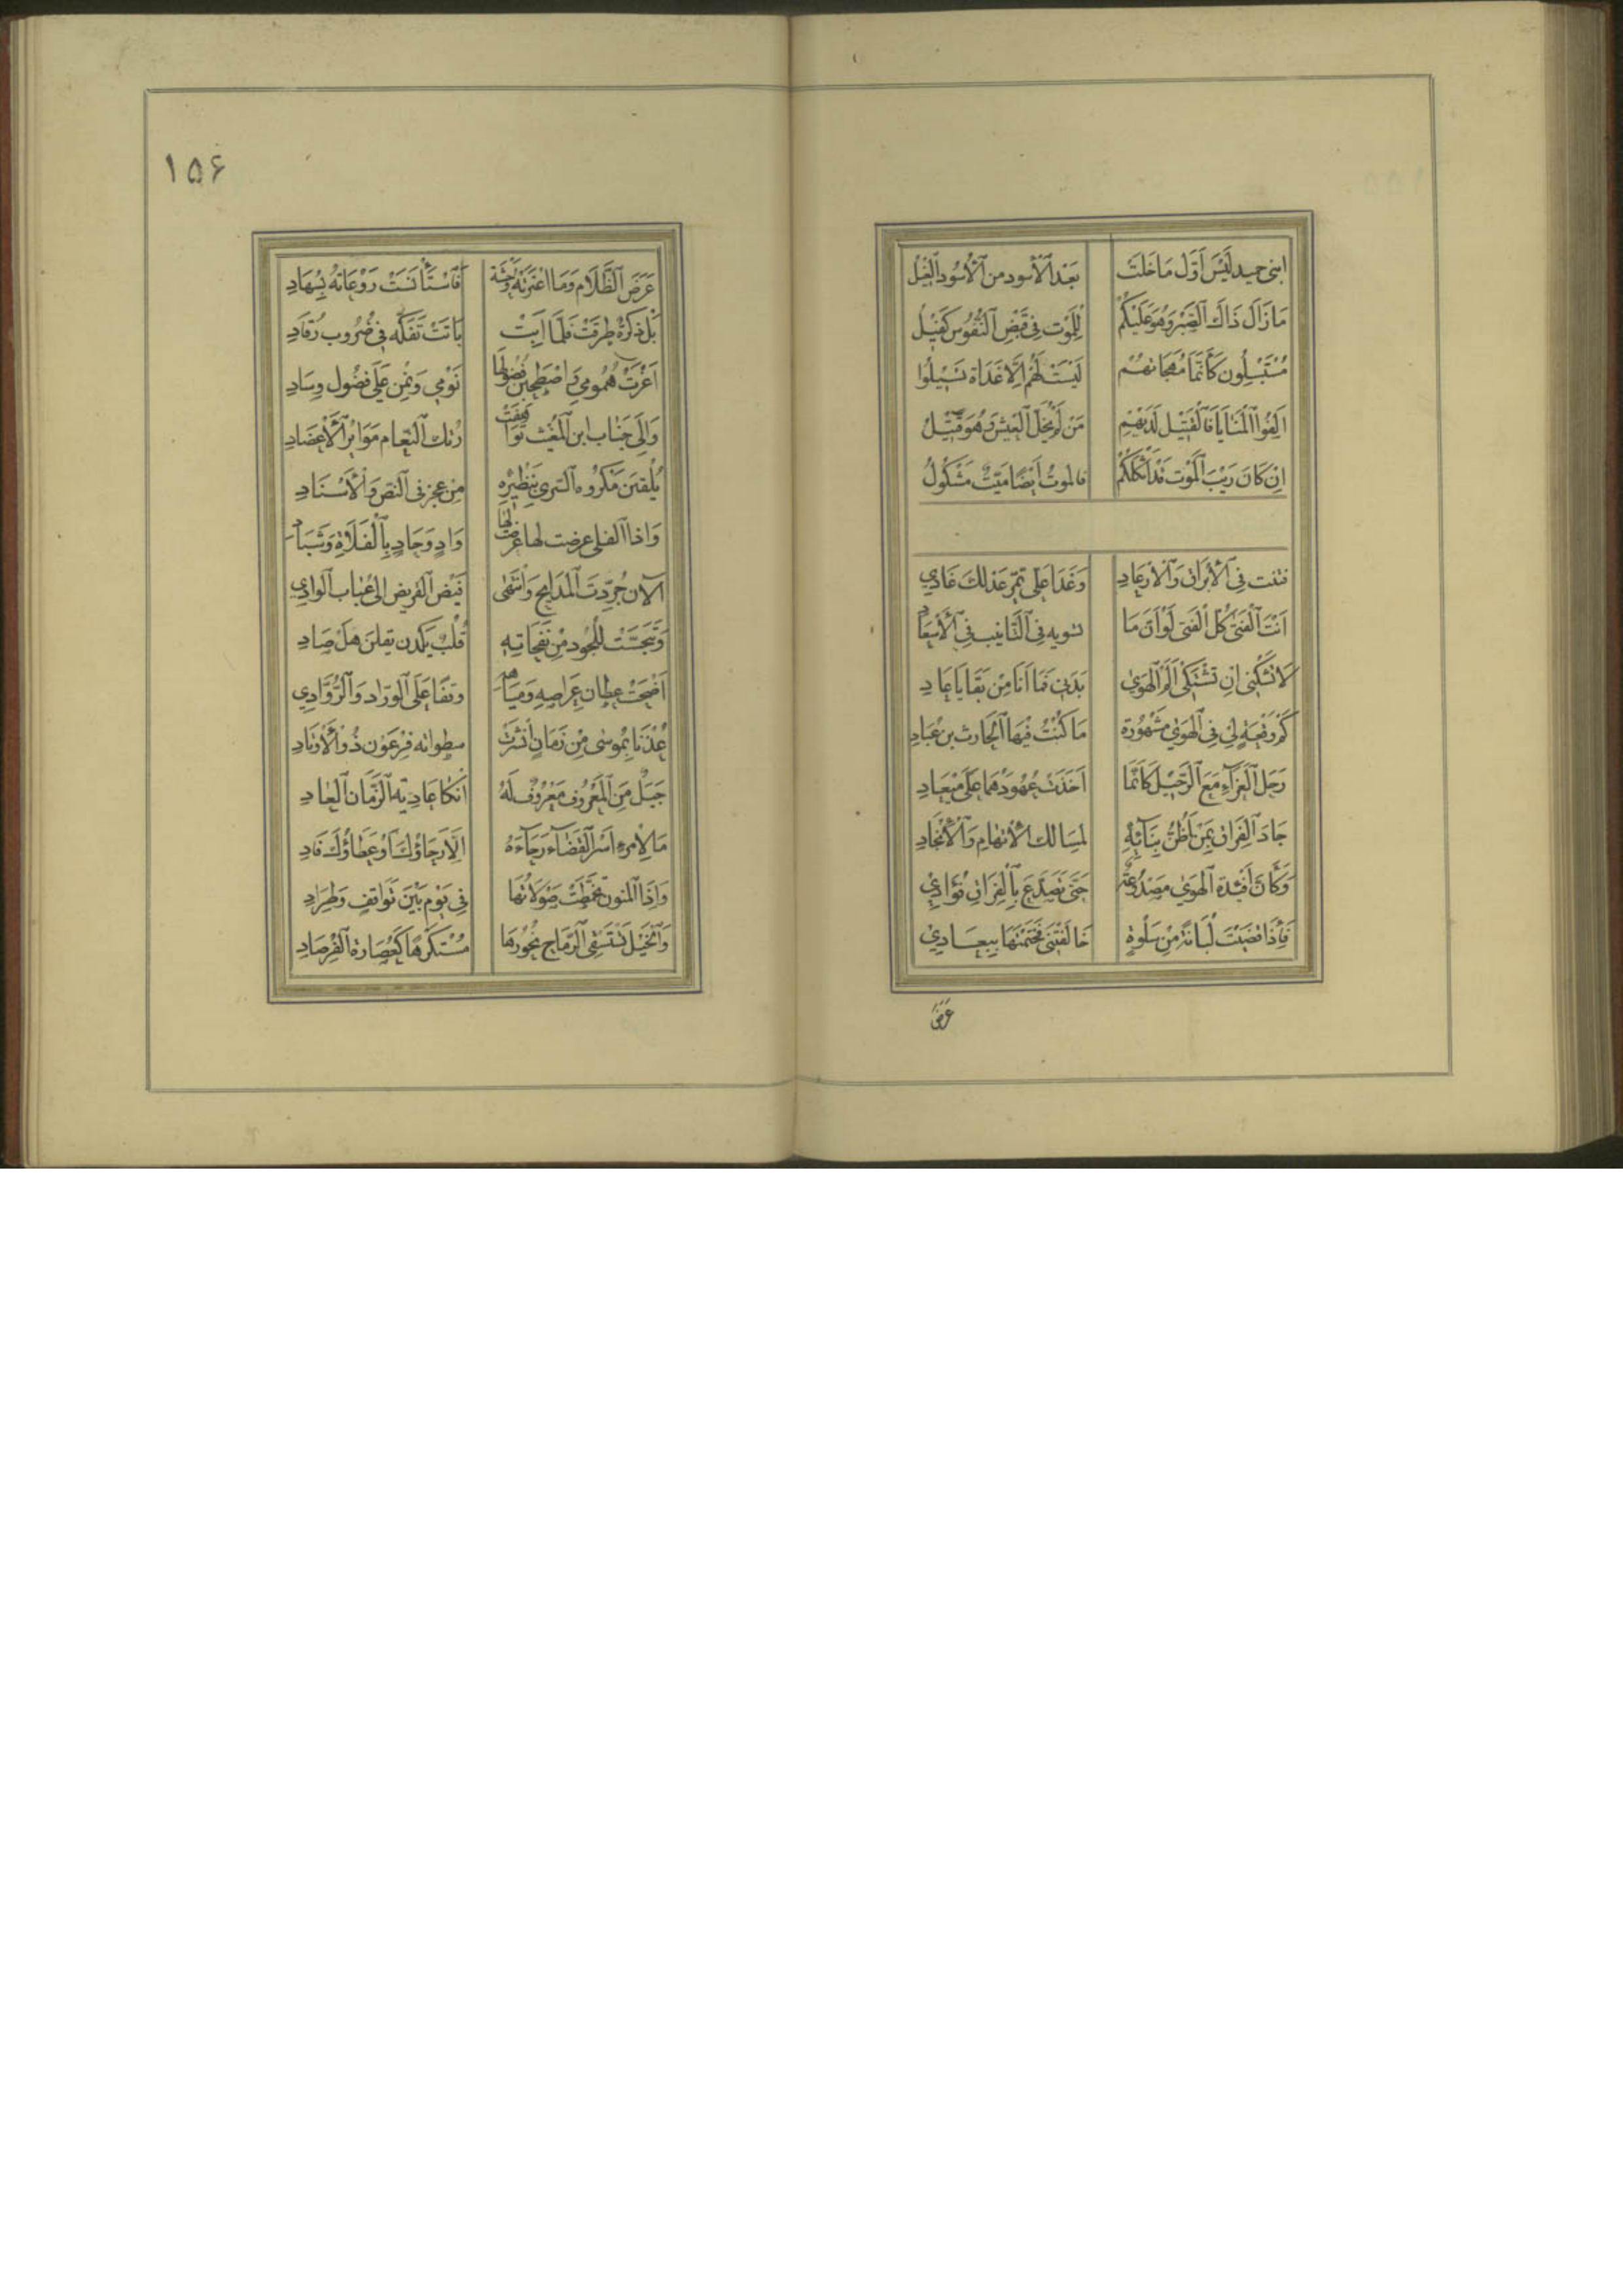 ابنى حميد ليس اول ما خلت بعد الأسود من الأسود الغيل
ما زال ذاك الصبر وهو عليكم للموت في قبض النفوس كفيل
مستبسلون كأنما مهجاتهم ليست لهم الا غداة تسيلوا
الفوا المنايا فالقتيل لديهم من لم يخل العيش وهو قتيل
ان كان ريب الموت قد اثكلكم فالموت ايضا ميت مثكول
في الأبراق والأرعاد وغدا على تمر عذلك غادي
انت الفتى كل الفتى لو ان ما تسويه في التانيب في الأسعاد
لا تشكنى ان تشتكى الم الهوى بدني فما انا من بقايا عاد
كم وقعة لي في الهوى مشهورة ما كنت فيها الحارث بن عباد
رحل العزاء مع الرحيل كأنما اخذت عهودهما على ميعاد
جاد الفراق بمن اظن بنائه لمسالك الأتهام والأنجاد
وكأن افئدة الهوى مصدوعة حتى تصدع بالفراق فؤادي
فاذا قضيت لبانة من سلوة خالفتنى فختمتها ببعادي
عرض
١٥۶
عرض الظلام وما اعترته وحشة فاستأنست روعاته بسهاد
بل ذكرة طرقت فلما ابت باتت تفكه في ضروب رقاد
اغرت همومي فاصطحبن فضولها نومي ونمن على فضول وساد
والى جناب ابن المغيث تواهقت رتك النعام موائر الأعضاد
يلقين مكروه السرى بنظيره من عجز في النص والأسناد
واذا الفلى عرضت لها غرضت لها واد وحاد بالفلاة وشباد
الان جردت المدايح وانتهى فيض القريض الى عباب الوادي
وتبجست للجود من نفحاته قلب يكدن يقلن هل صاد
اضحت عطان عراصه ومياهه وقفا على الوراد والروادي
عذنا بموسى من زمان انشرت سطواته فرعون ذو الأوتاد
جبل من المعروف معروف له انكا عادية الزمان العاد
ما لامرء اسر القضاء رجاءه الا رجاؤك او عطاؤك فاد
واذا المنون تخمطت صولاتها في يوم بين تواقف وطراد
والخيل تستسقى الرماح نحورها مستكرها كعصارة الفرصاد